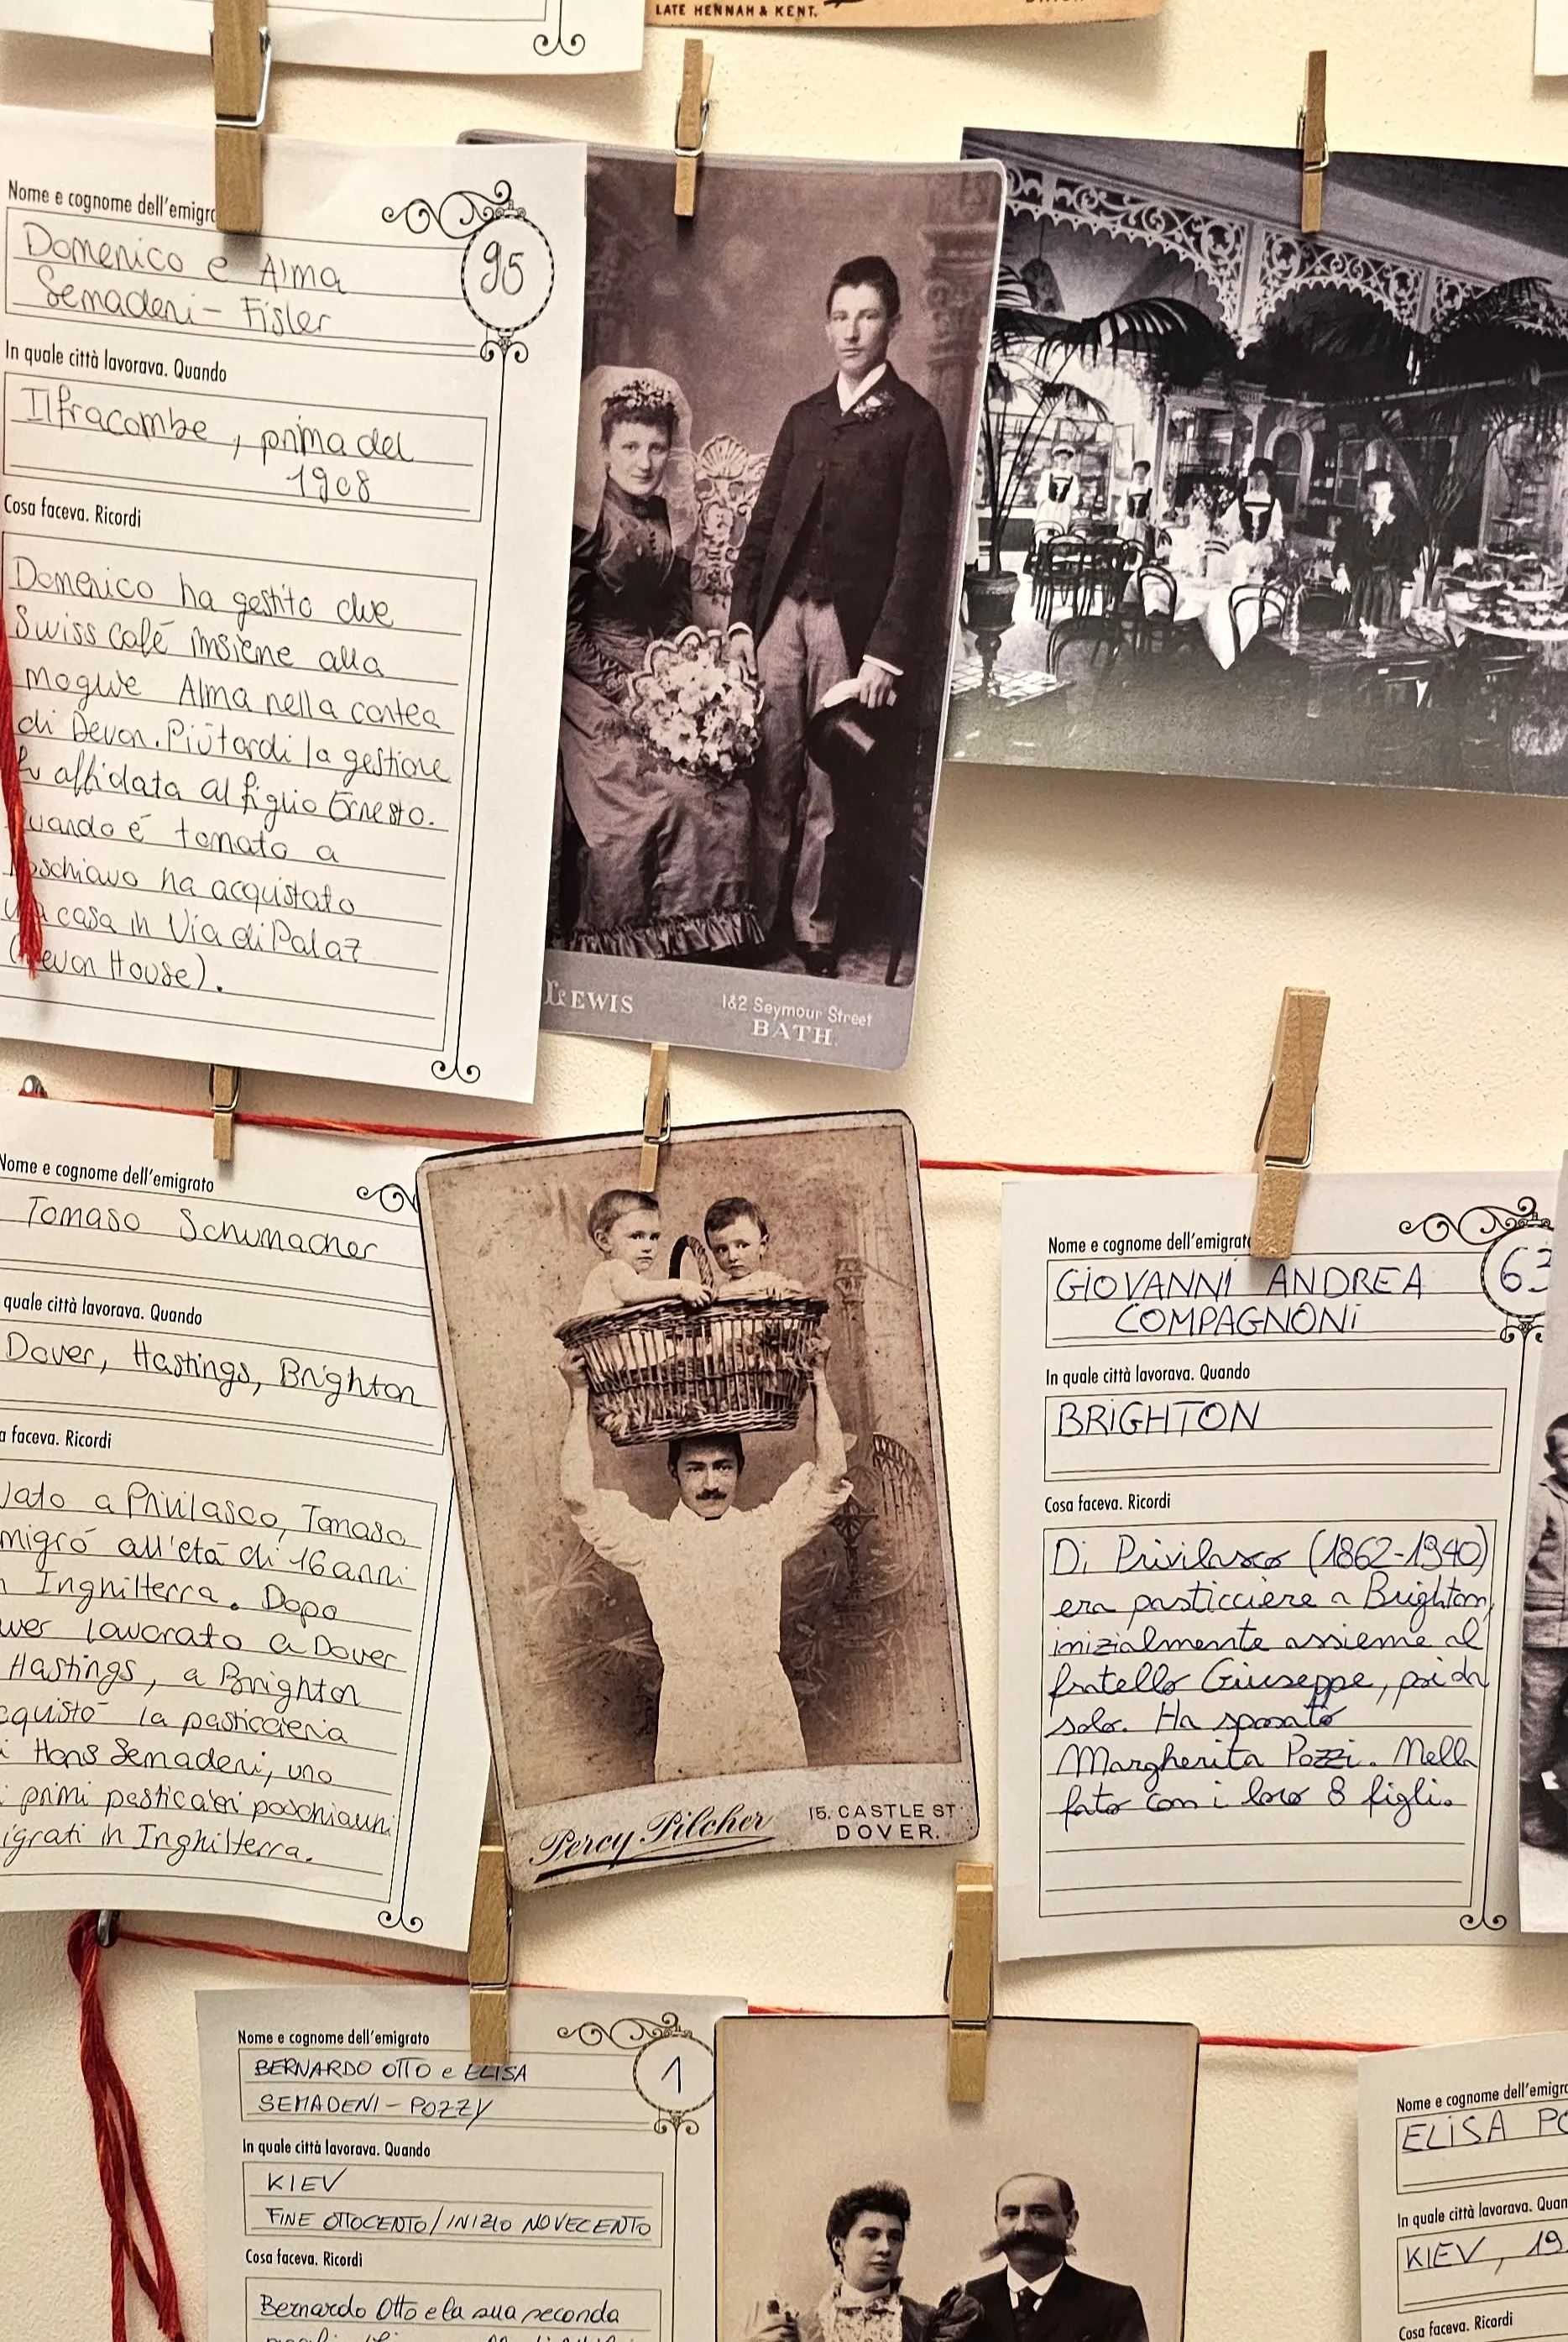 LATE HENNAH & KENT.
Nome e cognome dell'emigra
95
Domenico e Alma
Semadeni - Fisler
In quale città lavorava. Quando
Ilfracombe, prima del
1908
Cosa faceva. Ricordi
Domenico ha gestito due
Swiss Café insieme alla
moglie Alma nella contea
di Devon. Più tardi la gestione
fu affidata al figlio Ernesto.
uando é tornato a
oschiavo ha acquistato
una casa in Via di Palaz
(Devon House).
LEWIS
1&2 Seymour Street
BATH.
Nome e cognome dell'emigrato
Tomaso Schumacher
quale città lavorava. Quando
Dover, Hastings, Brighton
a faceva. Ricordi
Nato a Privilasco, Tomaso
migró all'etá di 16 anni
n Inghilterra. Dopo
aver lavorato a Dover
Hastings, a Brighton
cquistó la pasticceria
i Hans Semadeni, uno
i primi pasticcieri poschiavini
igrati in Inghilterra.
Percy Pilcher
15. CASTLE ST
DOVER.
Nome e cognome dell'emigrato
63
GIOVANNI ANDREA
COMPAGNONI
In quale città lavorava. Quando
BRIGHTON
Cosa faceva. Ricordi
Di Privilasco (1862-1940)
era pasticciere a Brighton,
inizialmente assieme al
fratello Giuseppe, poi da
solo. Ha sposato
Margherita Pozzi. Nella
foto con i loro 8 figli.
Nome e cognome dell'emigrato
1
BERNARDO OTTO e ELISA
SEMADENI - POZZY
In quale città lavorava. Quando
KIEV
FINE OTTOCENTO/INIZIO NOVECENTO
Cosa faceva. Ricordi
Bernardo Otto e la sua seconda
Nome e cognome dell'emigra
ELISA PO
In quale città lavorava. Quan
KIEV, 19
Cosa faceva. Ricordi